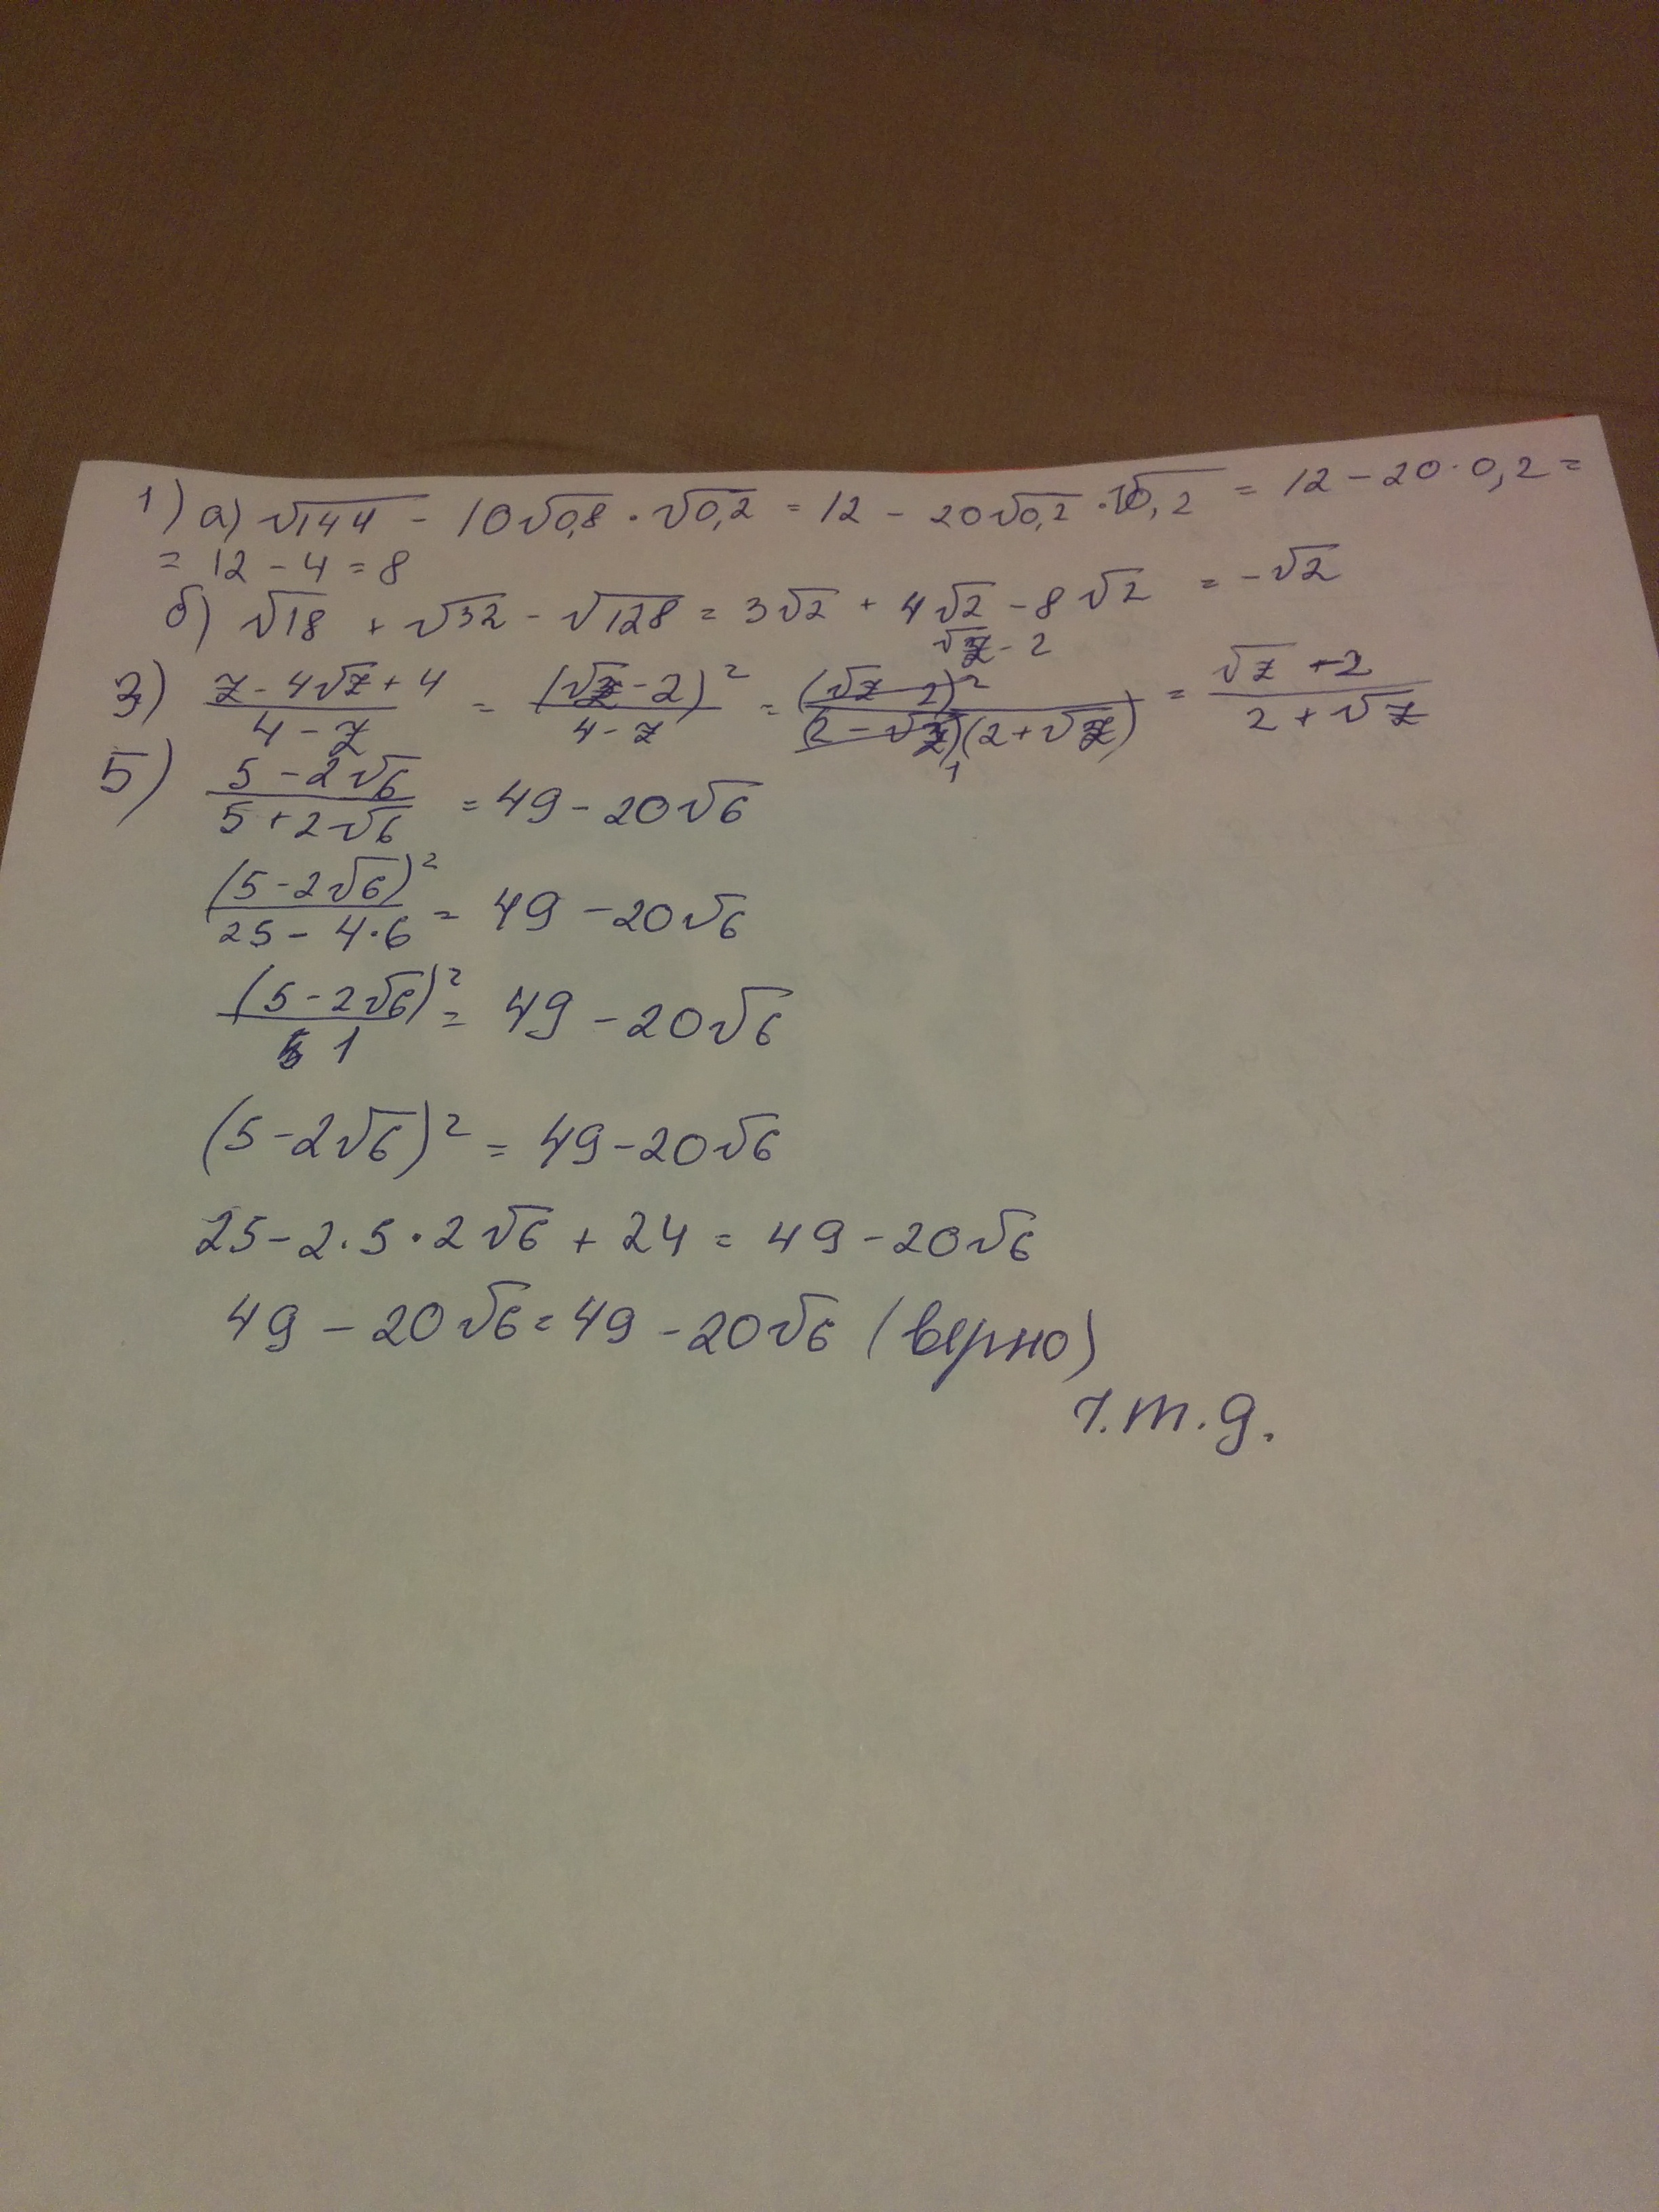 1) а) √144 - 10√0,8 · √0,2 = 12 - 20√0,2 · √0,2 = 12 - 20 · 0,2 =
= 12 - 4 = 8
б) √18 + √32 - √128 = 3√2 + 4√2 - 8√2 = -√2
√z - 2
3) (z - 4√z + 4)/(4 - z) = (√z - 2)²/(4 - z) = (√z - 2)²/((2 - √z)(2 + √z)) = (√z + 2)/(2 + √z)
1
5) (5 - 2√6)/(5 + 2√6) = 49 - 20√6
(5 - 2√6)²/(25 - 4·6) = 49 - 20√6
(5 - 2√6)²/1 = 49 - 20√6
(5 - 2√6)² = 49 - 20√6
25 - 2·5·2√6 + 24 = 49 - 20√6
49 - 20√6 = 49 - 20√6 (верно)
ч.т.д.